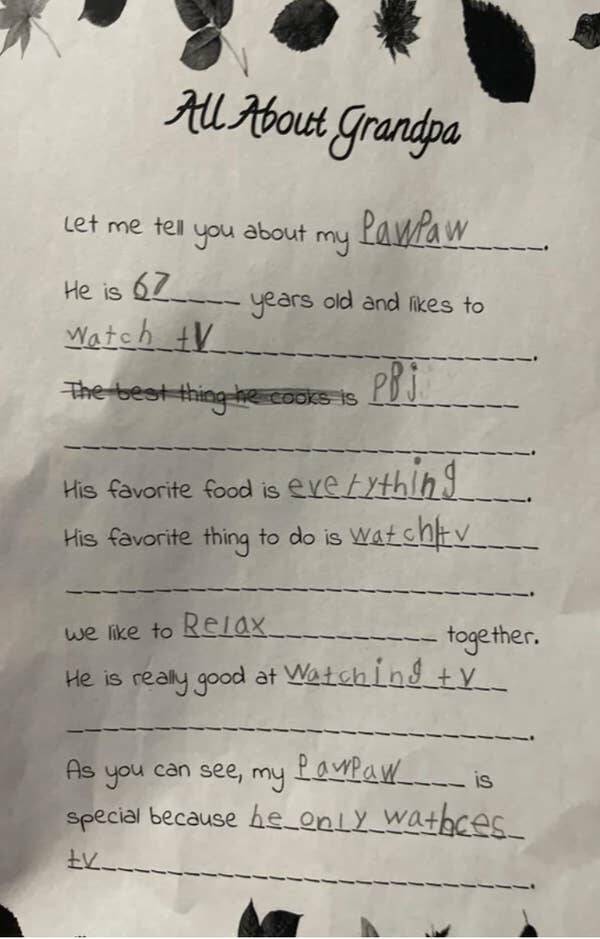 All About Grandpa
Let me tell you about my PawPaw.
He is 67 years old and likes to
watch tV.
The best thing he cooks is PBj
.
His favorite food is everything.
His favorite thing to do is watch tv
.
we like to Relax together.
He is really good at Watching tv
.
As you can see, my PawPaw is
special because he only wathces
tv.